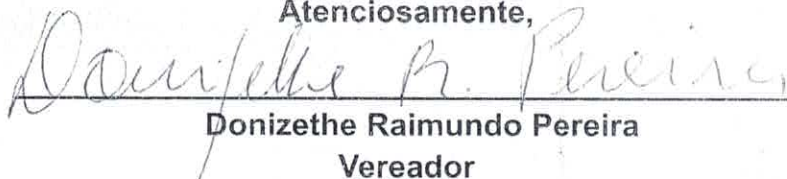 Atenciosamente,
Donizethe R. Pereira
Donizethe Raimundo Pereira
Vereador